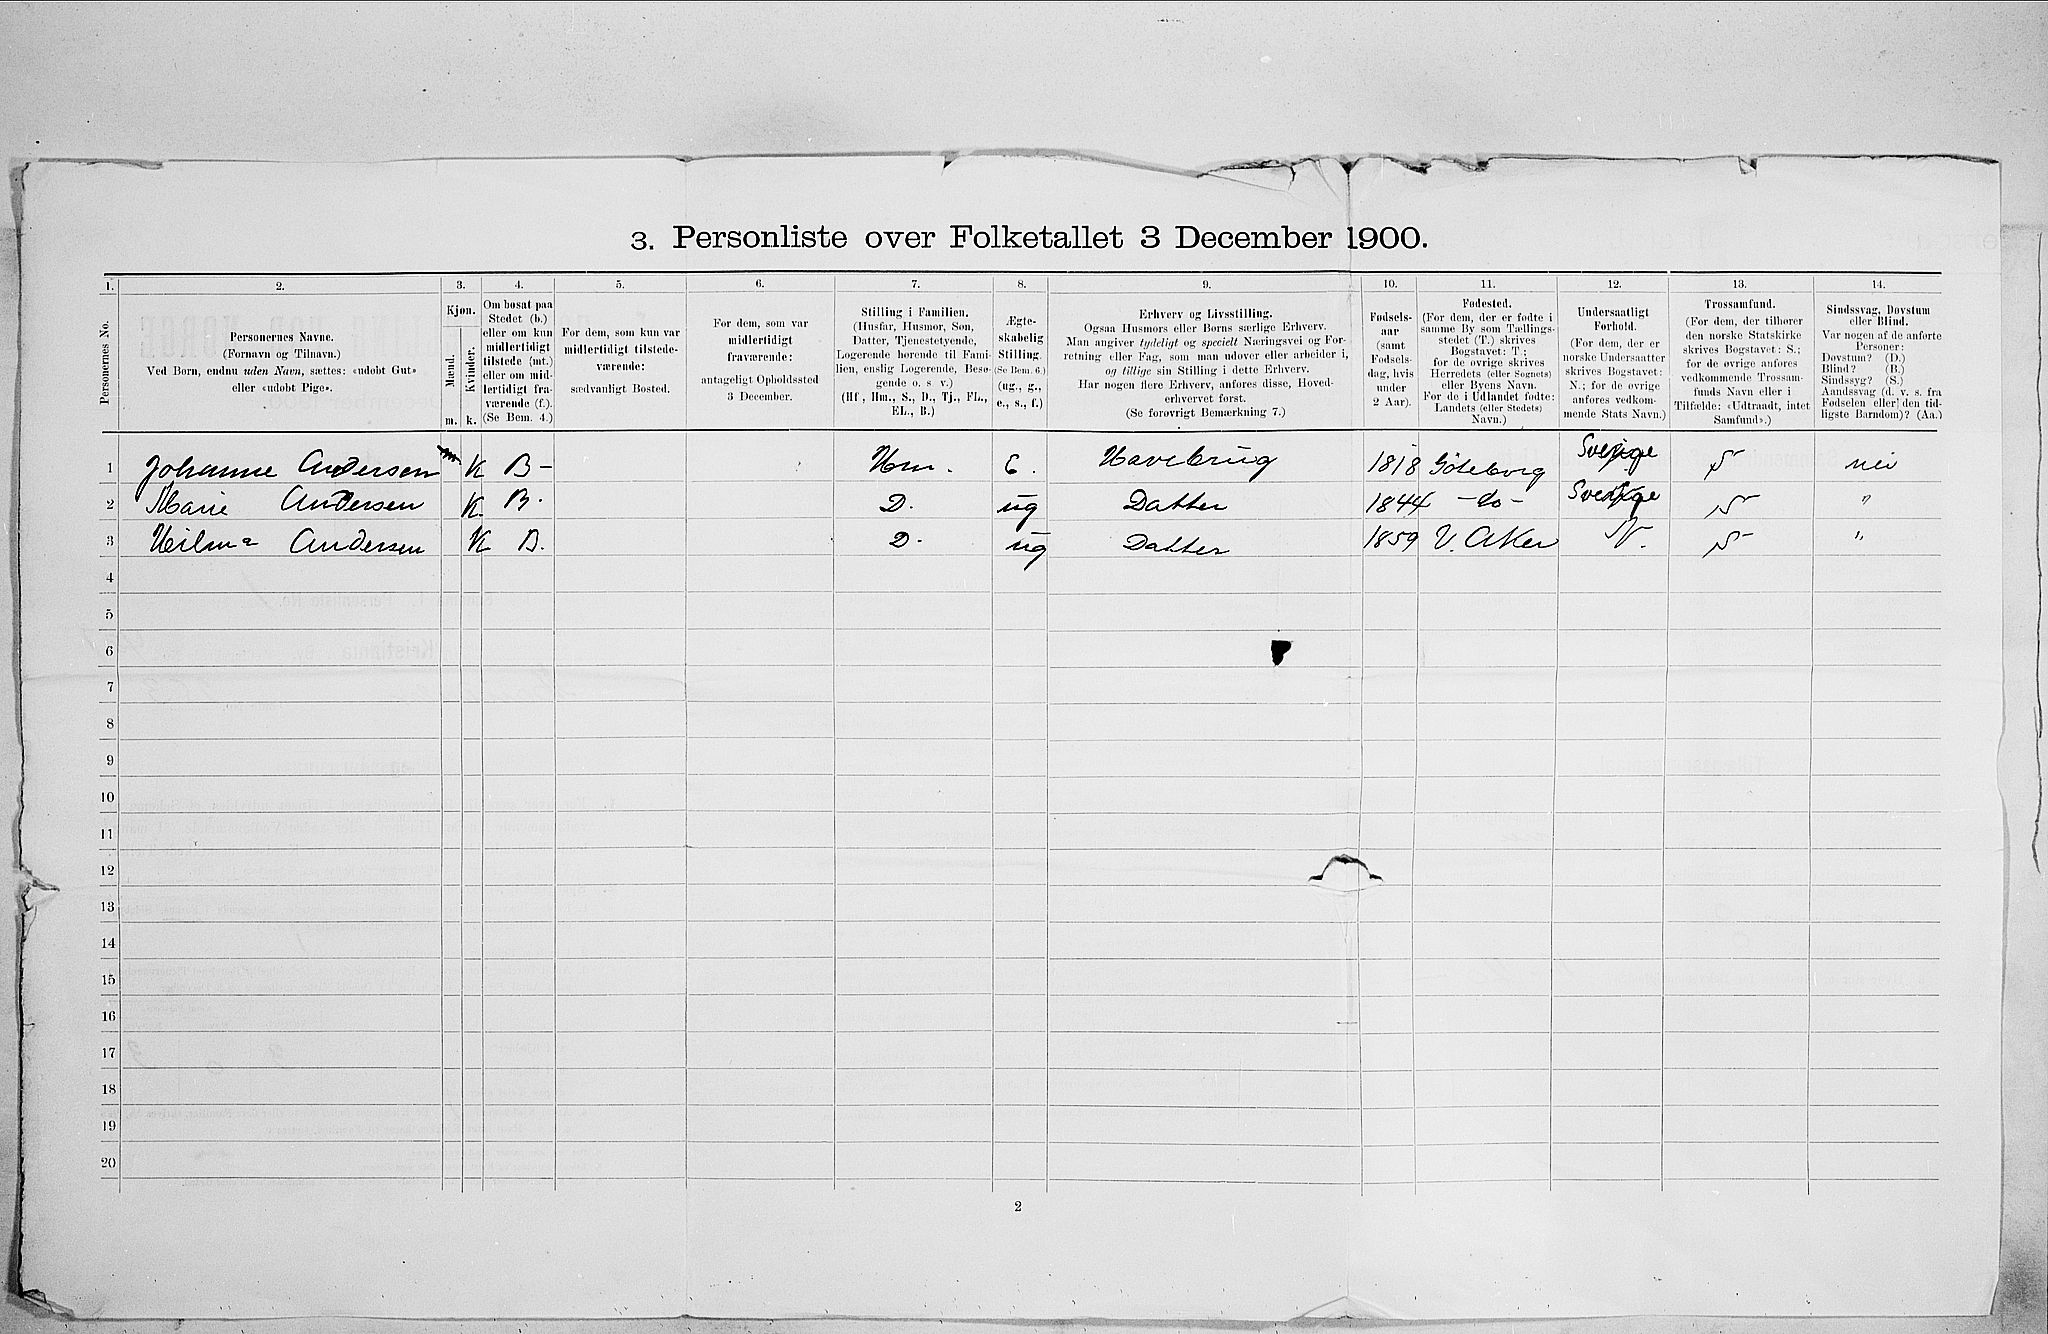 3. Personliste over Folketallet 3 December 1900.
1. 2. 3. 4. 5. 6. 7. 8. 9. 10. 11. 12. 13. 14.
Personernes No.
Personernes Navne.
(Fornavn og Tilnavn.)
Ved Børn, endnu uden Navn, sættes: «udøbt Gut»
eller «udøbt Pige».
Kjøn.
Mænd.
Kvinder.
m. k.
Om bosat paa
Stedet (b.)
eller om kun
midlertidigt
tilstede (mt.)
eller om mid-
lertidigt fra-
værende (f.).
(Se Bem. 4.)
For dem, som kun var
midlertidigt tilstede-
værende:
sædvanligt Bosted.
For dem, som var
midlertidigt
fraværende:
antageligt Opholdssted
3 December.
Stilling i Familien.
(Husfar, Husmor, Søn,
Datter, Tjenestetyende,
Logerende hørende til Fami-
lien, enslig Logerende, Besø-
gende o. s. v.)
(Hf., Hm., S., D., Tj., FL.,
EL., B.)
Ægte-
skabelig
Stilling.
(Se Bem. 6.)
(ug., g.,
e., s., f.)
Erhverv og Livsstilling.
Ogsaa Husmors eller Børns særlige Erhverv.
Man angiver tydeligt og specielt Næringsvei og For-
retning eller Fag, som man udøver eller arbeider i,
og tillige sin Stilling i dette Erhverv.
Har nogen flere Erhverv, anføres disse, Hoved-
erhvervet først.
(Se forøvrigt Bemærkning 7.)
Fødsels-
aar
(samt
Fødsels-
dag, hvis
under
2 Aar).
Fødested.
(For dem, der er fødte i
samme By som Tællings-
stedet (T.) skrives
Bogstavet: T.;
for de øvrige skrives
Herredets (eller Sognets)
eller Byens Navn.
For de i Udlandet fødte:
Landets (eller Stedets)
Navn.)
Undersaatligt
Forhold.
(For dem, der er
norske Undersaatter
skrives Bogstavet:
N.; for de øvrige
anføres vedkom-
mende Stats Navn.)
Trossamfund.
(For dem, der tilhører
den norske Statskirke
skrives Bogstavet: S.;
for de øvrige anføres
vedkommende Trossam-
funds Navn eller i
Tilfælde: «Udtraadt, intet
Samfund».)
Sindssvag, Døvstum
eller Blind.
Var nogen af de anførte
Personer:
Døvstum? (D.)
Blind? (B.)
Sindssyg? (S.)
Aandssvag (d. v. s. fra
Fødselen eller den tid-
ligste Barndom)? (Aa.)
1 Johanne Andersen K B- Hm. E. Havebrug 1818 Göteborg Sverige S nei
2 Marie Andersen K. B. D. ug Datter 1844 -do- Sverige S "
3 Hilma Andersen K B. D. ug Datter 1859 V. Aker N. S "
4
5
6
7
8
9
10
11
12
13
14
15
16
17
18
19
20
2